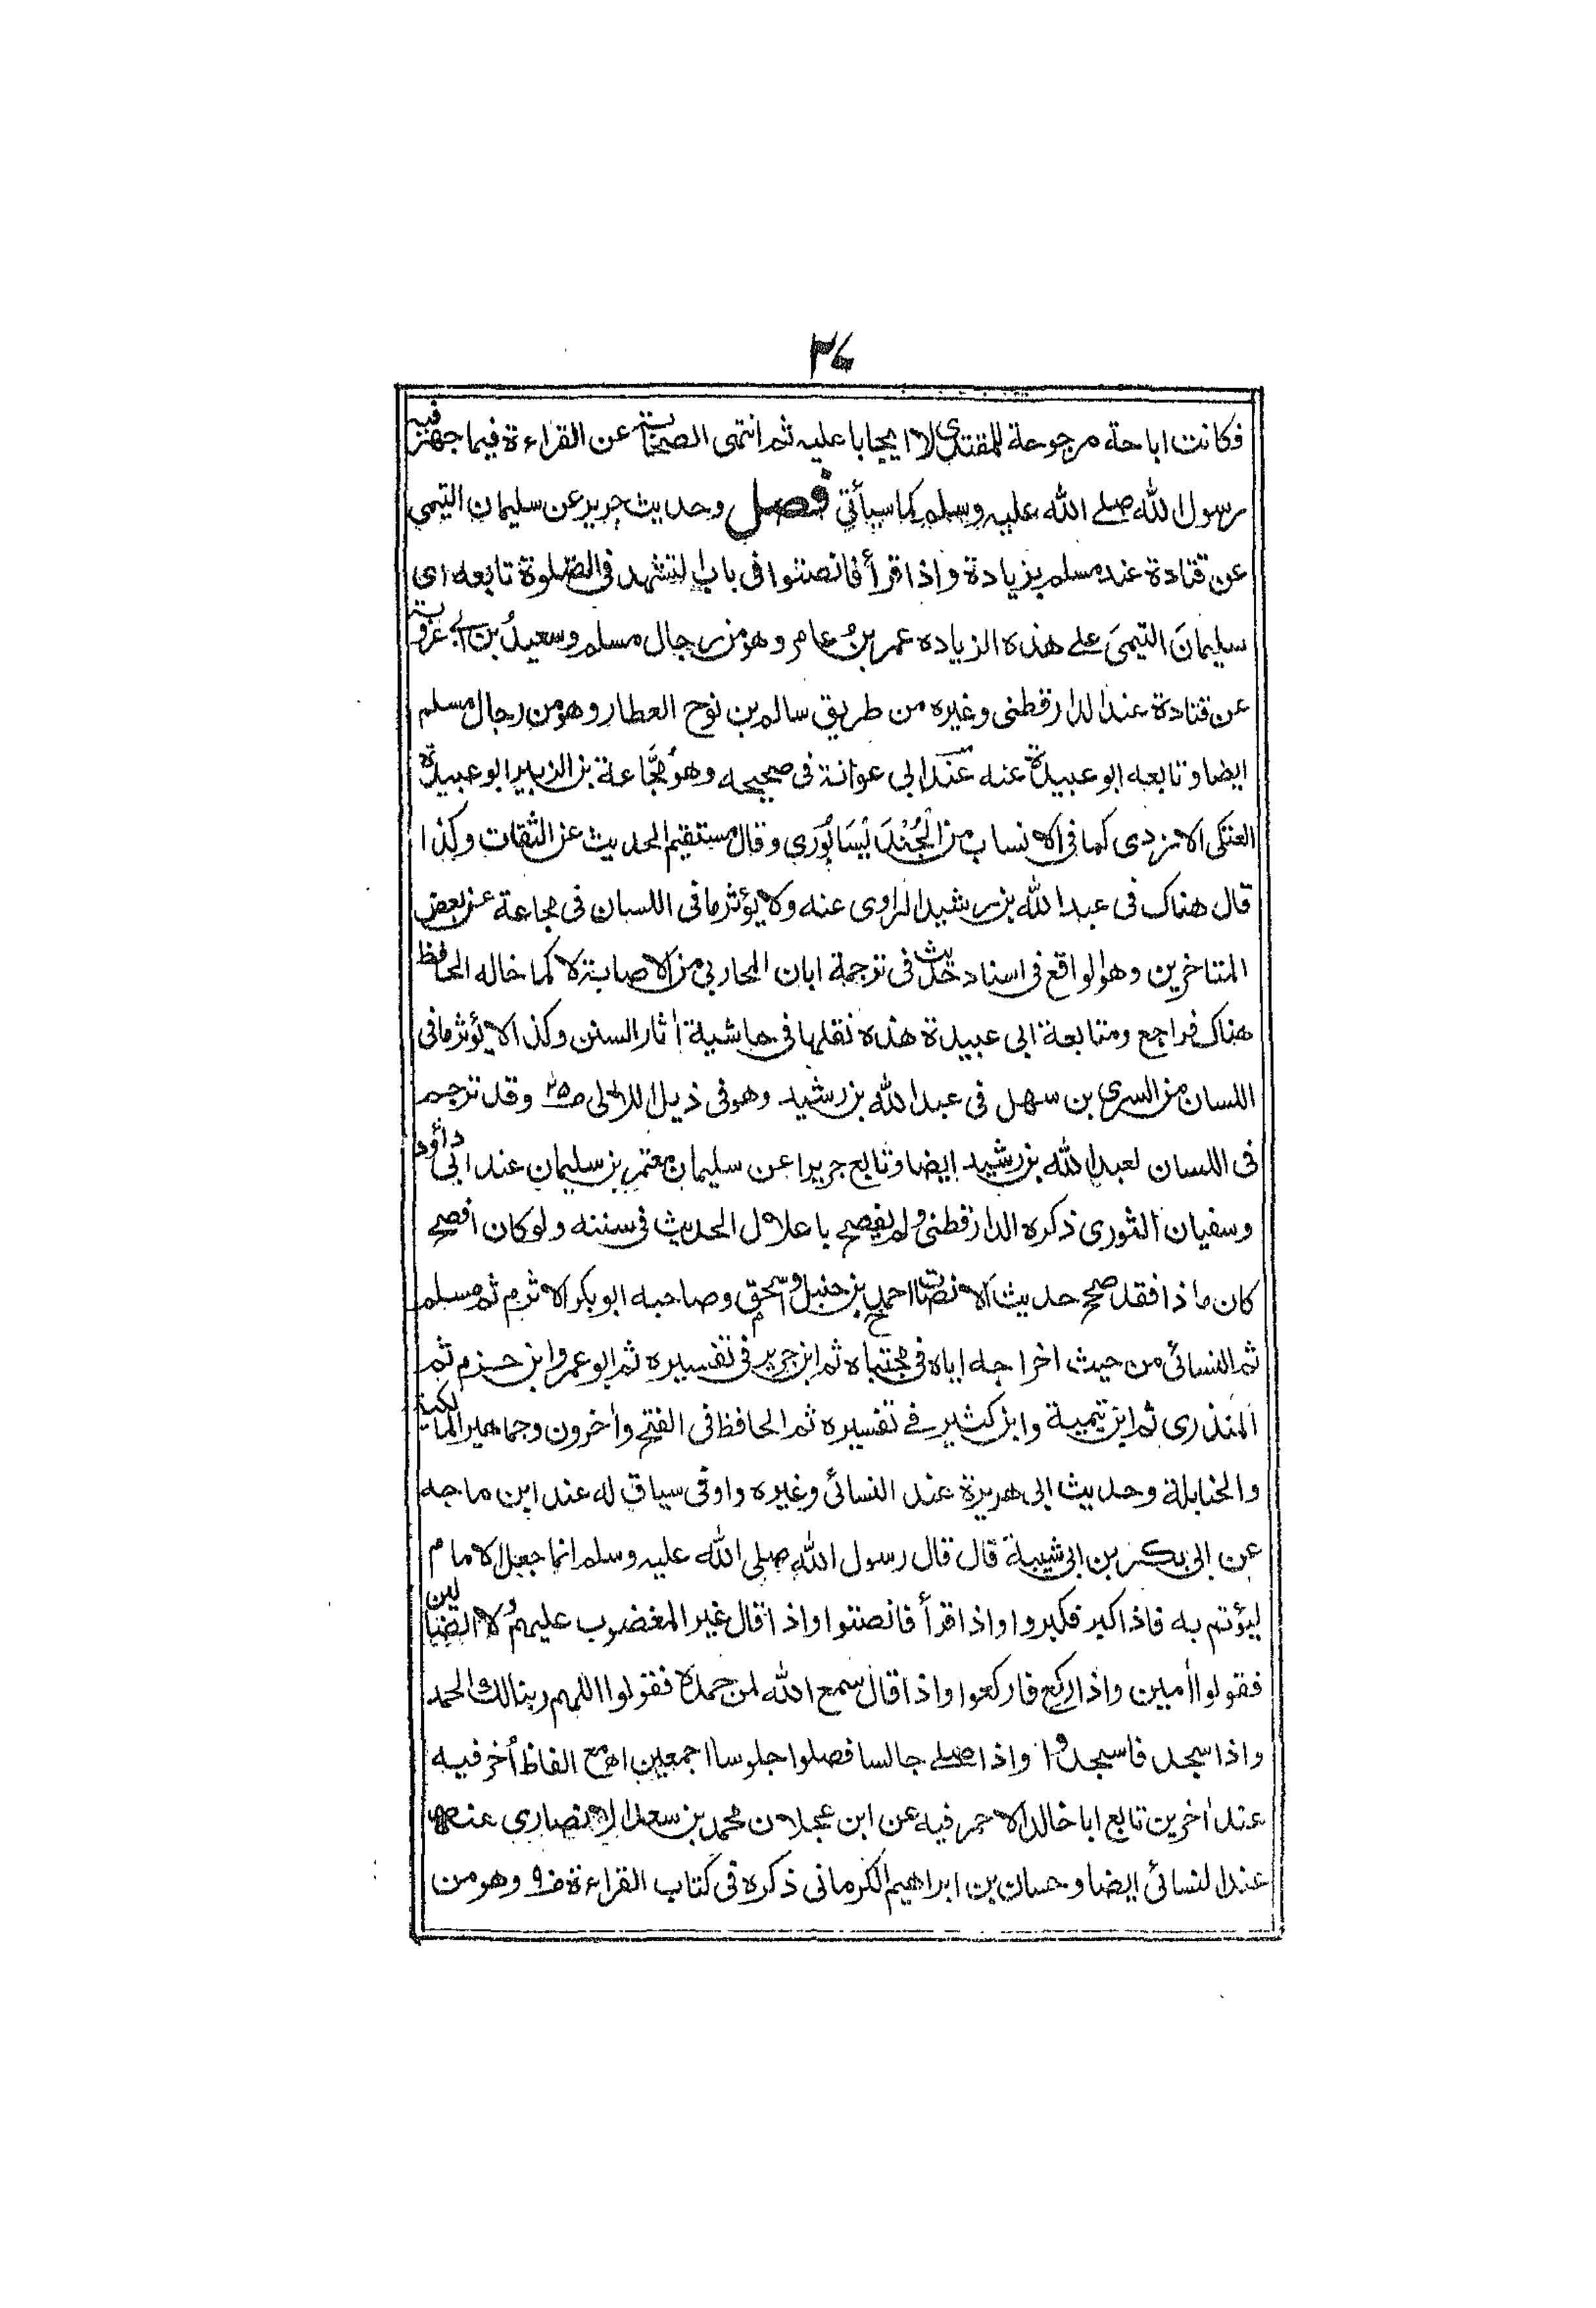 ۲۷
فكانت اباحة مرجوحة للمقتدى لا ايجابا عليه ثم انتهى الصحابة عن القراءة فيما جهر فيه
رسول الله صلى الله عليه وسلم كما سيأتي فصل وحديث جرير عن سليمان التيمي
عن قتادة عند مسلم بزيادة واذا قرأ فانصتوا فى باب التشهد فى الصلوة تابعه اى
سليمانَ التيميَ على هذه الزياده عمر بنُ عامر وهو من رجال مسلم وسعيدُ بن ابى عروبة
عن قتادة عند الدارقطنى وغيره من طريق سالم بن نوح العطار وهو من رجال مسلم
ايضا وتابعه ابو عبيدة عنه عند ابى عوانة فى صحيحه وهو مُجَّاعة بن الزبير ابو عبيدة
العتكى الازدى كما فى الانساب من الجُنْدَيْسَابُورى وقال مستقيم الحديث عن الثقات وكذا
قال هناك فى عبد الله بن رشيد الراوى عنه ولا يؤثر ما فى اللسان فى مجاعة عن بعض
المتاخرين وهو الواقع فى اسناد حديث فى ترجمة ابان المحاربى من الاصابة لا كما خاله الحافظ
هناك فراجع ومتابعة ابى عبيدة هذه نقلها فى حاشية اٰثار السنن وكذا لا يؤثر ما فى
اللسان من السرى بن سهل فى عبد الله بن رشيد وهو فى ذيل اللآلى وقد ترجم
فى اللسان لعبد الله بن رشيد ايضا وتابع جريرا عن سليمان معتمر بن سليمان عند ابى داؤد
وسفيان الثورى ذكره الدارقطنى ولم يفصح باعلال الحديث فى سننه ولو كان افصح
كان ماذا فقد صحح حديث الانصات احمد بن حنبل واسحٰق وصاحبه ابو بكر الاثرم ثم مسلم
ثم النسائى من حيث اخراجه اياه فى مجتباه ثم ابن جرير فى تفسيره ثم ابو عمر وابن حزم ثم
المنذرى ثم ابن تيمية وابن كثير فى تفسيره ثم الحافظ فى الفتح واٰخرون وجماهير المالكية
والحنابلة وحديث ابى هريرة عند النسائى وغيره واوفى سياق له عند ابن ماجه
عن ابى بكر بن ابى شيبة قال قال رسول الله صلى الله عليه وسلم انما جعل الامام
ليؤتم به فاذا كبر فكبروا واذا قرأ فانصتوا واذا قال غير المغضوب عليهم ولا الضالين
فقولوا اٰمين واذا ركع فاركعوا واذا قال سمع الله لمن حمده فقولوا اللهم ربنا لك الحمد
واذا سجد فاسجدوا واذا صلى جالسا فصلوا جلوسا اجمعين اھ مع الفاظ اُخر فيه
عند اٰخرين تابع ابا خالد الاحمر فيه عن ابن عجلان محمد بن سعد الانصارى عنه
عند النسائى ايضا وحسان بن ابراهيم الكرمانى ذكره فى كتاب القراءة وهو من